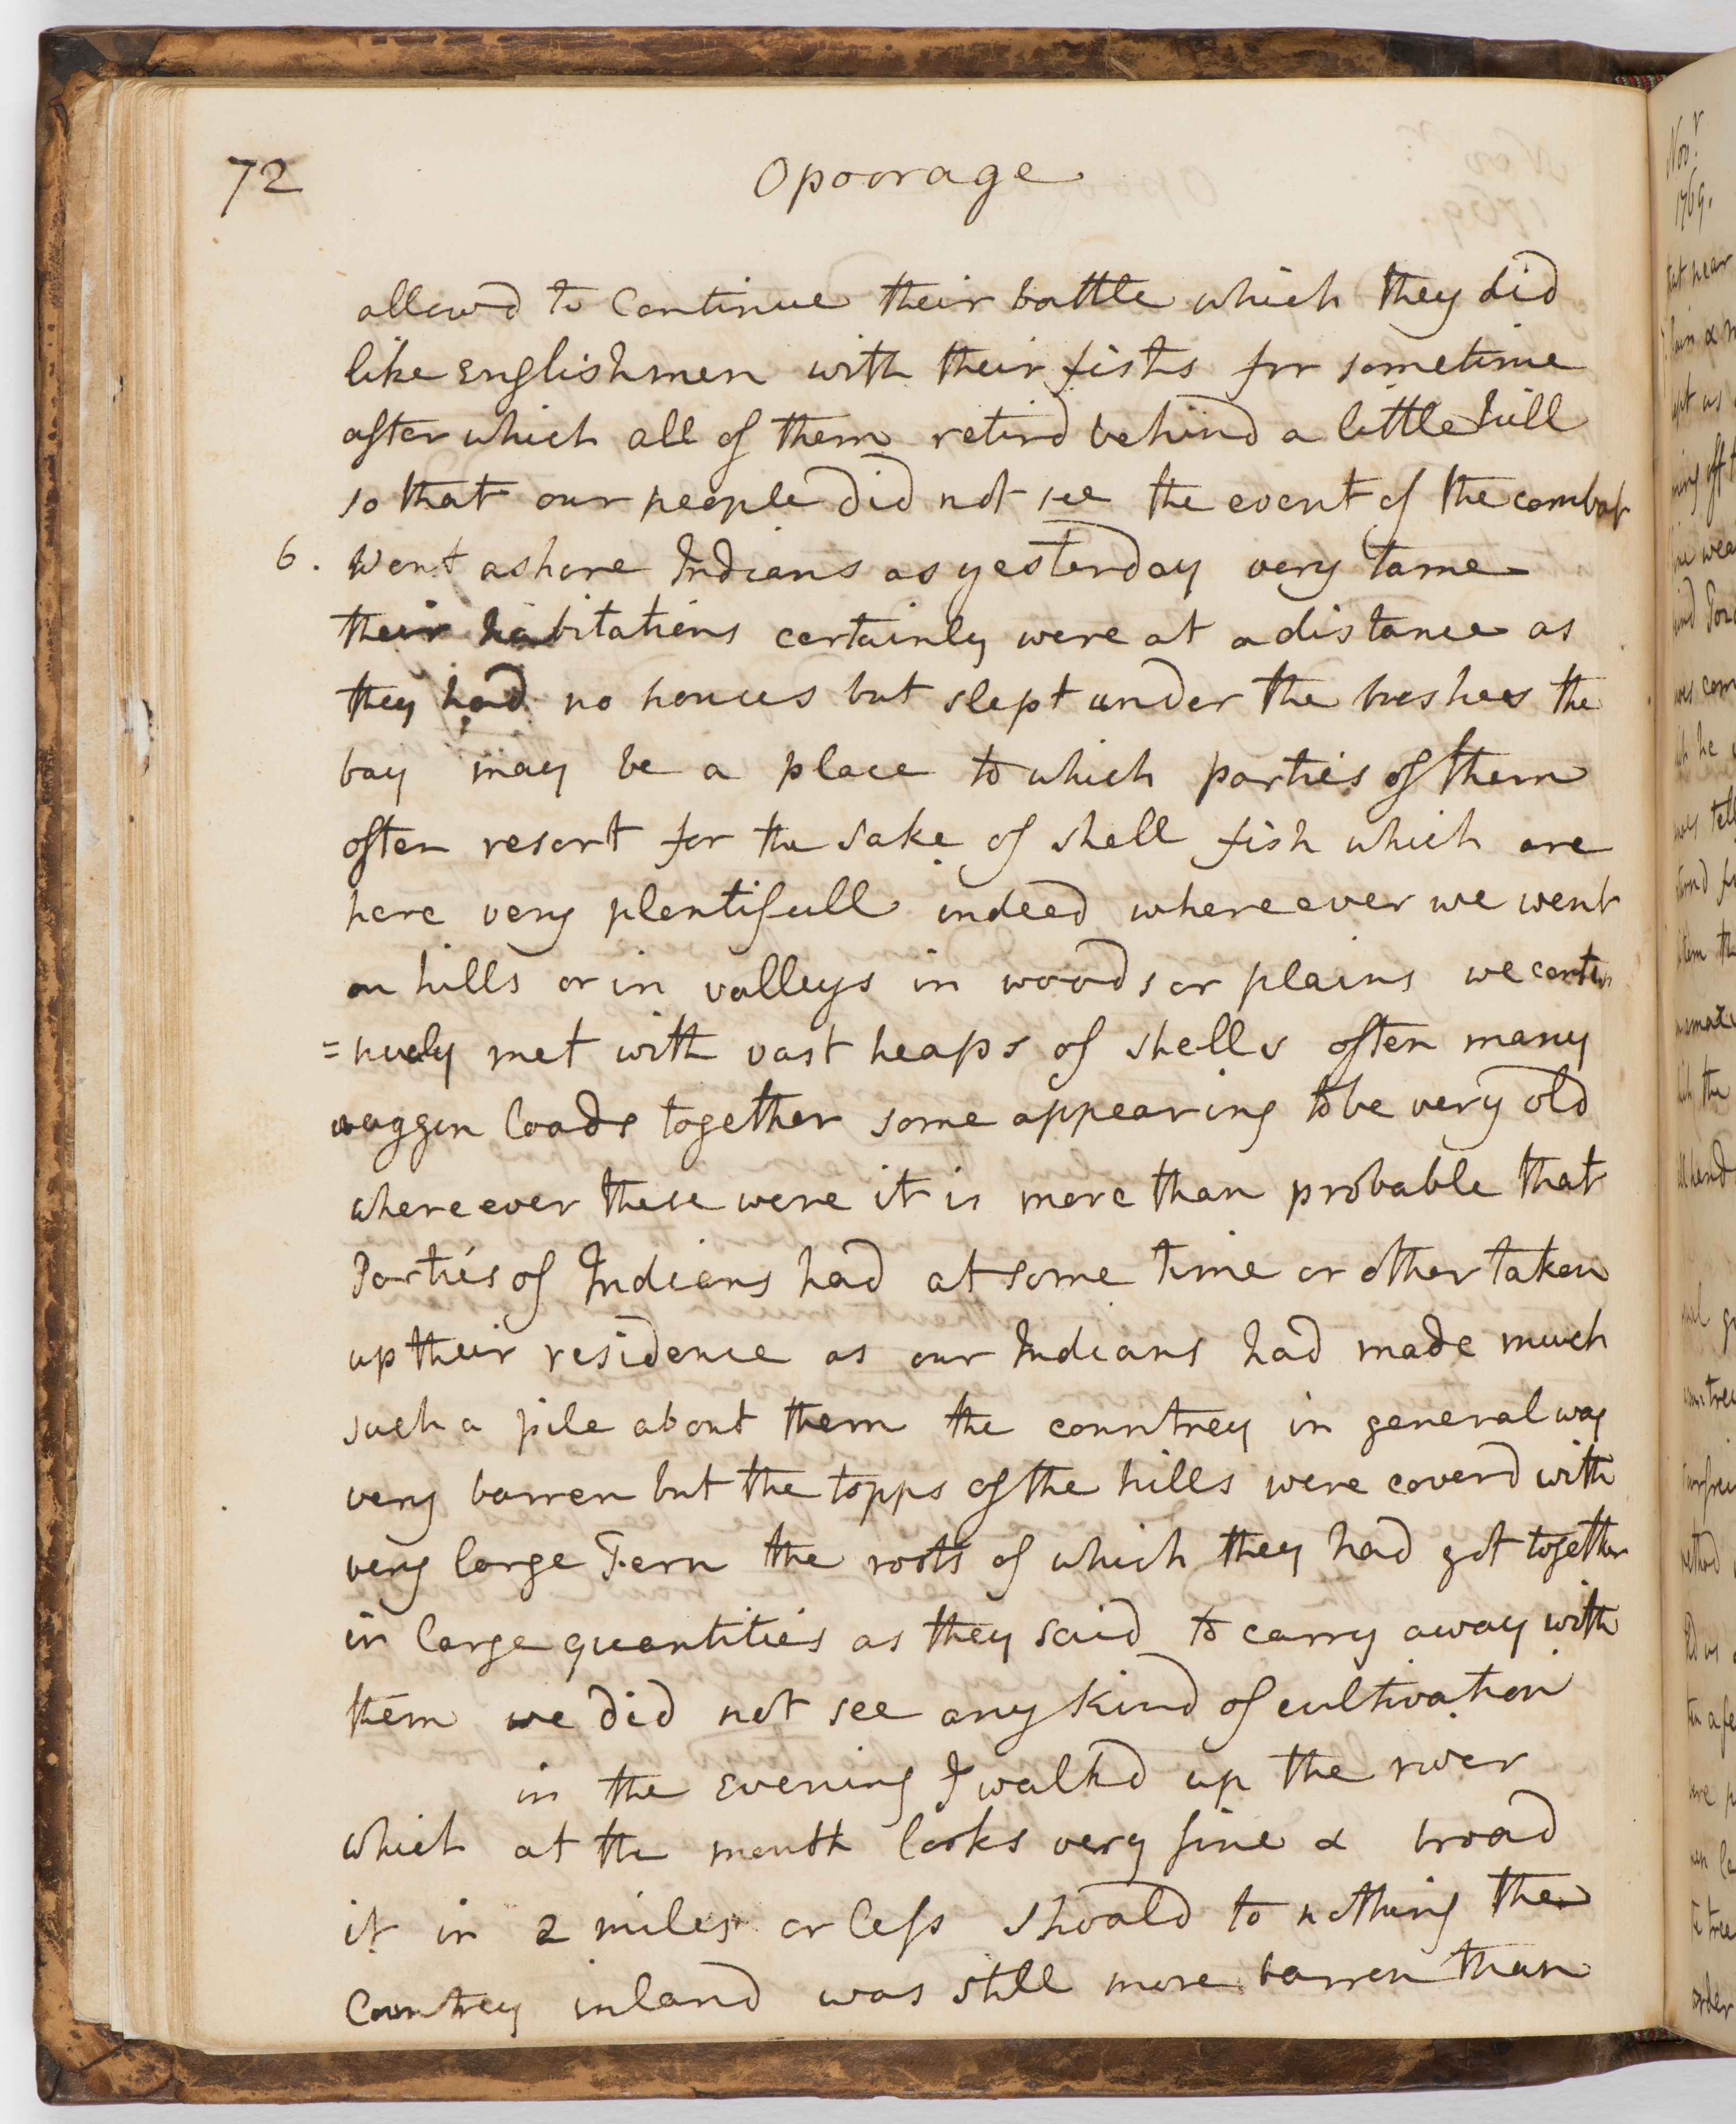 72 Opoorage
allowd to Continue their battle which they did
like Englishmen with their fists for sometime
after which all of them retird behind a little hill
so that our people did not see the event of the combat
6. Went ashore Indians as yesterday very tame
their habitations certainly were at a distance as
they had no houses but slept under the bushes the
bay may be a place to which parties of them
often resort for the sake of shell fish which are
here very plentifull indeed where ever we went
on hills or in valleys in woods or plains we contin
=nuely met with vast heaps of shells often many
waggon loads together some appearing to be very old
where ever these were it is more than probable that
Parties of Indians had at some time or other taken
up their residence as our Indians had made much
such a pile about them the countrey in general was
very barren but the topps of the hills were coverd with
very large Fern the roots of which they had got together
in large quantities as they said to carry away with
them we did not see any kind of cultivation
in the Evening I walkd up the river
which at the mouth looks very fine & broad
it in 2 miles or less shoald to nothing the
Countrey inland was still more barren than
Novr
1769.